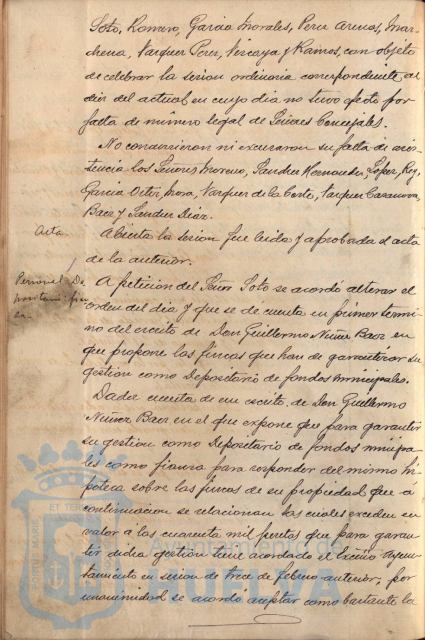 Soto, Romero, Garcia Morales, Perez Arenas, Mar-
chena, Vazquez Perez, Vizcaya y Ramos, con objeto
de celebrar la sesion ordinaria correspondiente al
dia del actual en cuyo dia no tuvo efecto por
falta de número legal de Señores Concejales.
No concurrieron ni excusaron su falta de asis-
tencia los Señores Moreno, Sanchez Hernandez, Lopez, Rey,
Garcia Mora, Vazquez de la Corte, Vazquez
Baez y Sanchez Diaz.
Acta.
Abierta la sesion fue leida y aprobada el acta
de la anterior.
Personal De
A peticion del Señor Soto se acordó alterar el
orden del dia y que se dé cuenta en primer termi-
no del escrito de Don Guillermo Nuñez Baez en
que propone las fincas que han de garantizar su
gestion como Depositario de fondos municipales.
Dada cuenta de un escrito de Don Guillermo
Nuñez Baez en el que expone que para garantir
su gestion como Depositario de fondos municipa-
les como fianza para responder del mismo hi-
poteca sobre las fincas de su propiedad que a
continuacion se relacionan las cuales exceden en
valor á las cuarenta mil pesetas que para garan-
tir dicha gestion tiene acordado el Excmo Ayun-
tamiento en sesion de trece de febrero anterior, por
unanimidad se acordó aceptar como bastante la
Ayuntamiento de
HUELVA